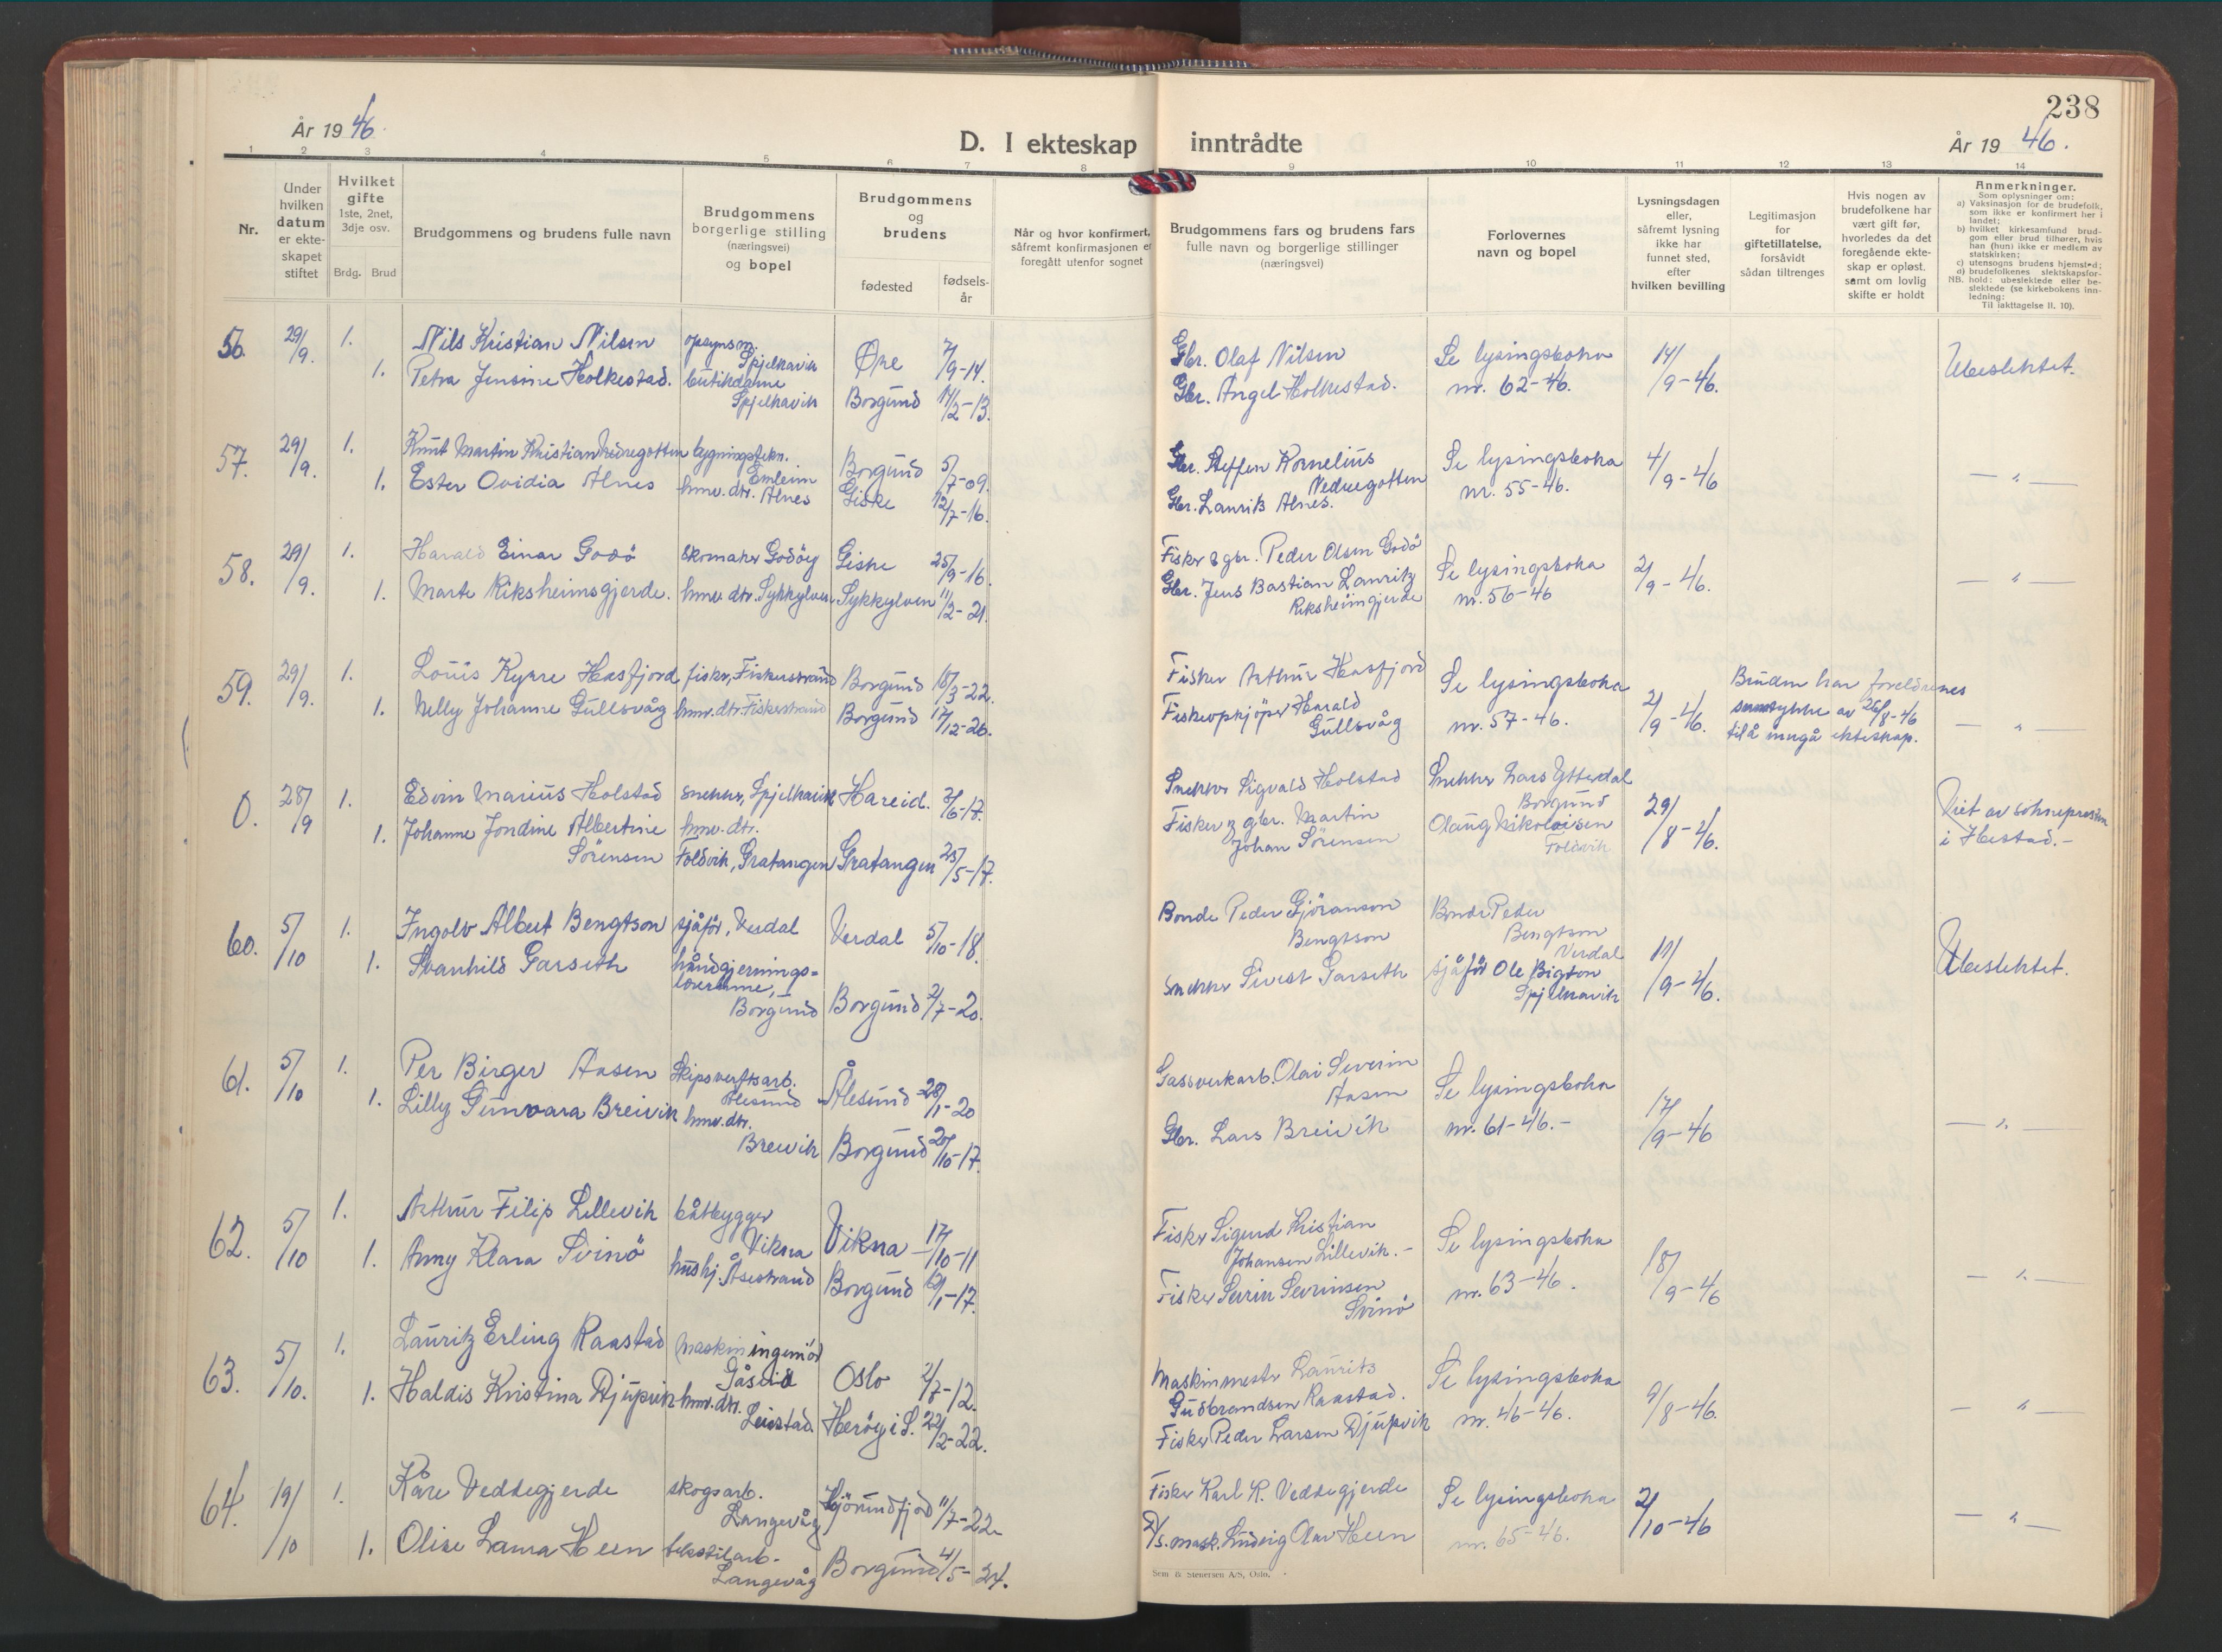 238
År 1946.
D. I ekteskap inntrådte
År 1946.
1 2 3 4 5 6 7 8 9 10 11 12 13 14
Nr.
Under hvilken datum er ekteskapet stiftet
Hvilket gifte 1ste, 2net, 3dje osv.
Brdg. Brud
Brudgommens og brudens fulle navn
Brudgommens borgerlige stilling (næringsvei) og bopel
Brudgommens og brudens
fødested
fødselsår
Når og hvor konfirmert, såfremt konfirmasjonen er foregått utenfor sognet
Brudgommens fars og brudens fars fulle navn og borgerlige stillinger (næringsvei)
Forlovernes navn og bopel
Lysningsdagen eller, såfremt lysning ikke har funnet sted, efter hvilken bevilling
Legitimasjon for giftetillatelse, forsåvidt sådan tiltrenges
Hvis nogen av brudefolkene har vært gift før, hvorledes da det foregående ekteskap er opløst. samt om lovlig skifte er holdt
Anmerkninger.
Som oplysninger om:
a) Vaksinasjon for de brudefolk, som ikke er konfirmert her i landet;
b) hvilket kirkesamfund brudgom eller brud tilhører, hvis han (hun) ikke er medlem av statskirken;
c) utensogns brudens hjemsted;
d) brudefolkenes slektskapsforhold: ubeslektede eller beslektede (se kirkebokens innledning:
NB.
Til iakttagelse II. 10).
56. 29/9. 1. Nils Kristian Nilsen opsynsm. Spjelkavik Øre 7/9-14. Gbr. Olaf Nilsen Se lysingsboka nr. 62-46. 14/9-46. Ubeslektet.
1. Petra Jensine Holkestad. butikdame Spjelkavik Borgund 14/2-13. Gbr. Angel Holkestad.
57. 29/9. 1. Knut Martin Kristian Nedregotten bygningstekn. Emleim Borgund 5/7-09. Gbr. Steffen Kornelius Nedregotten Se lysingsboka nr. 55-46. 4/9-46 — " —
1. Ester Ovidia Alnes hmv. dtr. Alnes Giske 12/7-16. Gbr. Laurits Alnes.
58. 29/9. 1. Harald Einar Godö skomaker Godöy Giske 25/9-16. Fisker & gbr. Peder Olsen Godö Se lysingsboka nr. 56-46 2/9-46. — " —
1. Marte Riksheimsgjerde. hmv. dtr. Sykkylven Sykkylven 11/2-21. Gbr. Jens Bastian Lauritz Riksheimgjerde
59. 29/9. 1. Louis Kyrre Hasfjord fisker, Fiskerstrand Borgund 18/3-22. Fisker Arthur Hasfjord Se lysingsboka nr. 57-46. 2/9-46. Bruden har foreldrenes samtykke av 26/8-46 til å inngå ekteskap. — " —
1. Nelly Johanne Gullsvåg hmv. dtr. Fiskerstrand Borgund 17/12-26. Fiskeopkjöper Harald Gullsvåg
0. 28/9 1. Edvin Marius Holstad snekker, Spjelkavik Hareid. 3/6-17. Snekker Sigvald Holstad Snekker Lars Ytterdal Borgund 29/8-46. Viet av soknepresten i Ibestad.-
1. Johanne Jondine Albertine Sörensen hmv. dtr. Foldvik, Gratangen Gratangen 25/5-17. Fisker og gbr. Martin Johan Sörensen Olaug Nikolaisen Foldvik
60. 5/10 1. Ingolv Albert Bengtson sjåför, Verdal Verdal 5/10-18. Bonde Peder Gjöranson Bengtson Bonde Peder Bengtson Verdal 11/9-46. Ubeslektet.
1. Svanhild Garseth håndgjerningslærerinne, Borgund Borgund 2/7-20. Snekker Sivert Garseth sjåför Ole Bigton Spjelkavik
61. 5/10 1. Per Birger Aasen Skipsverftsarb. Ålesund Ålesund 28/1-20 Gassverkarb. Olai Severin Aasen Se lysingsboka nr. 61-46.- 17/9-46 — " —
1. Lilly Gunvara Breivik hmv. dtr. Breivik Borgund 20/10-17. Gbr. Lars Breivik
62. 5/10 1. Arthur Filip Lillevik båtbygger Vikna Vikna 17/10-11 Fisker Sigurd Kristian Johansen Lillevik.- Se lysingsboka nr. 63-46. 18/9-46 — " —
1. Anny Klara Svinö hushj. Åsestrand Borgund 10/1-17. Fisker Severin Severinsen Svinö
63. 5/10. 1. Lauritz Erling Raastad Maskiningeniör Gåseid Oslo 2/7-12. Maskinmester Laurits Gudbrandsen Raastad. Se lysingsboka nr. 46-46. 9/8-46. — " —
1. Haldis Kristina Djupvik hmv. dtr. Leirstad Heröy i S. 22/2-22. Fisker Peder Larsen Djupvik
64. 19/10 1. Kåre Veddegjerde skogsarb. Langevåg Hjörundfjord 11/7-22. Fisker Karl K. Veddegjerde Se lysingsboka nr. 65-46. 2/10-46 — " —
1. Olise Laura Heen tekstilarb. Langevåg Borgund 4/5-24. D/S. mask. Ludvig Olav Heen
Sem & Stenersen A/S, Oslo.